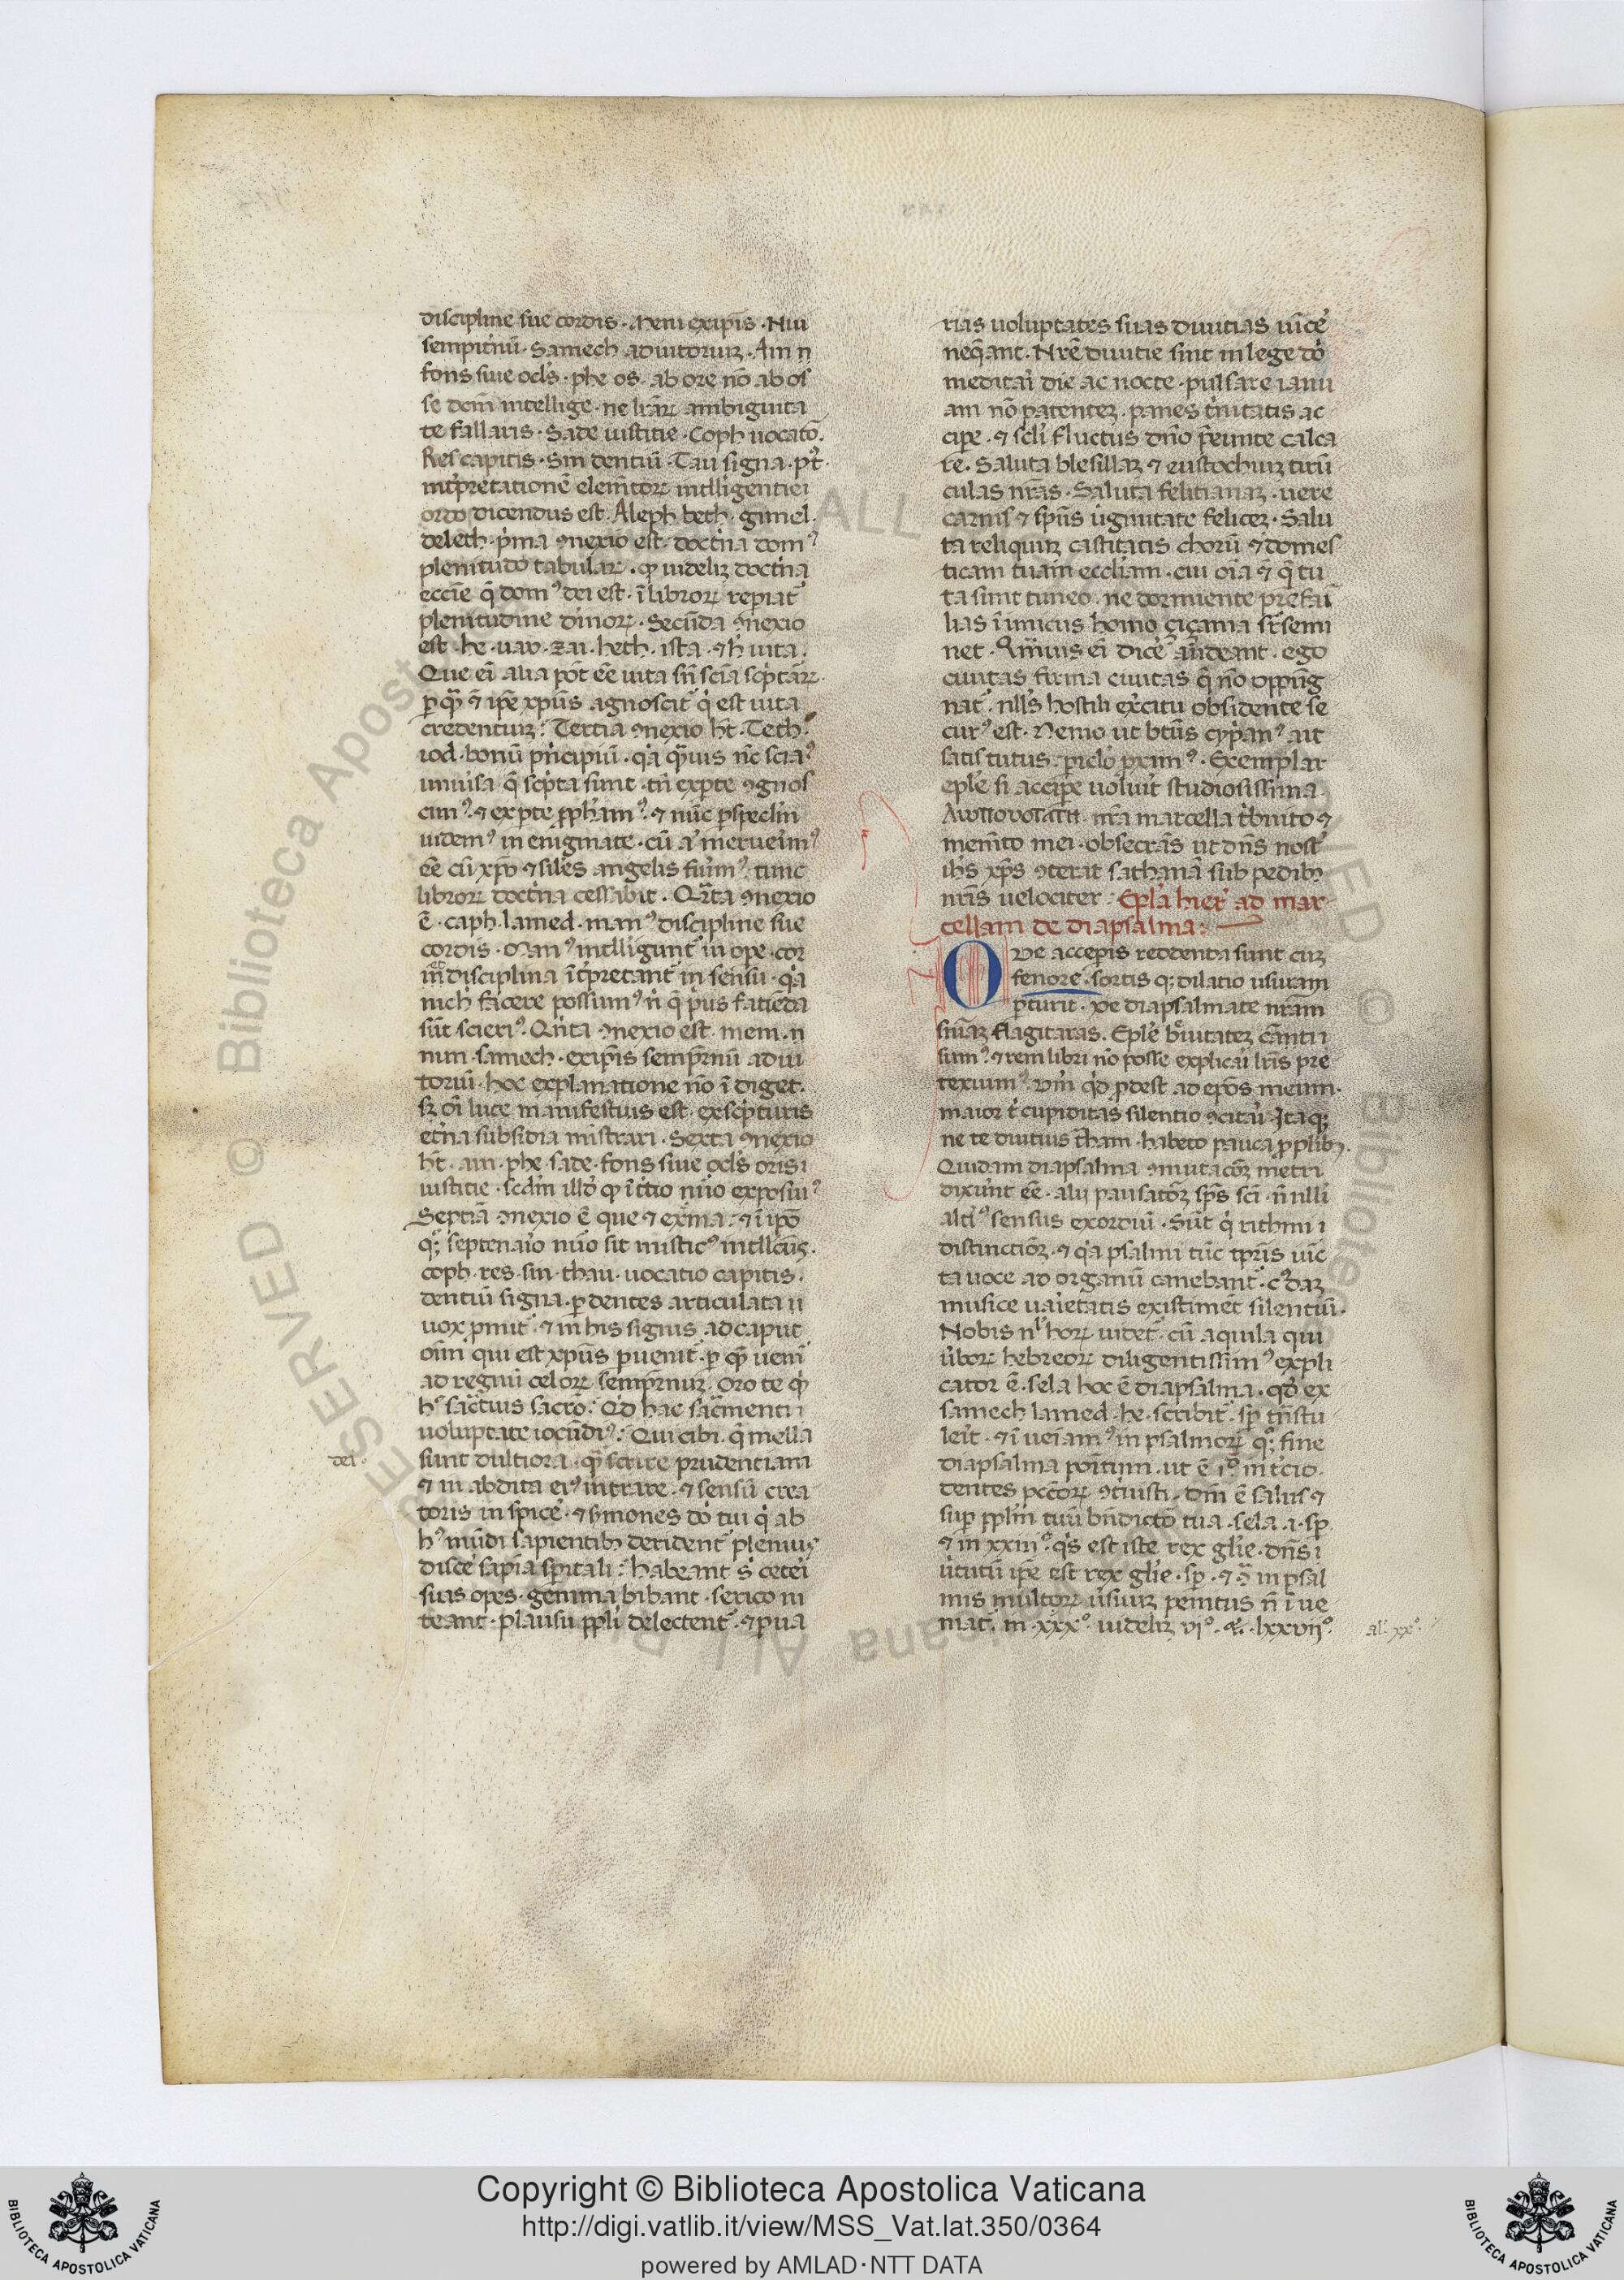 discipline siue cordis · Mem ex ipĩs · Nun
sempit̾nũ · Samech adiutoriuʒ · Ain ɫ
fons siue ocĺs · phe os · ab ore nõ ab os
se dcm̃ intellige · ne lrãꝝ ambiguita
te fallaris · Sade iustitie · Coph uocatõ ·
Res capitis · Sin dentiũ · Tau signa · pt̾ ·
int̾pretationẽ elem̃toꝝ intlligentie ı
ordo dicendus est · Aleph beth · gimel ·
deleth · p̾ma ꝯnexio est · doct̾na domꝰ
plenitudo tabulaꝝ · ꝙ uidelɜ doct̾na
eccĩe q̃ domꝰ dei est · ĩ libroꝝ repiat̾
plenitudine diuinoꝝ · Secũda ꝯnexio
est · he · uav · zai · heth · ista · ⁊ h̾ uita ·
Que ẽi alia põt eẽ uita sñ scĩa scp̾tãꝝ ·
ꝑ q̃s ⁊ ipẽ xpũs agnoscit̾ q̾ est uita
credentiuʒ · Tertia ꝯnexio ht̃ · Teth ·
iod · bonũ pncipiũ · q̾a q̃uis nc̃ sciaꝰ
uniusa q̃ scp̾ta sunt · tñ ex ꝑte ꝯgnos
cimꝰ · ⁊ ex ꝑte ꝓphamꝰ · ⁊ nũc ꝑ specĺm
uidemꝰ in enigmate · cũ aũ meruerimꝰ
eẽ cũ xp̃o ⁊ siles angelis fuimꝰ · tunc
libroꝝ doct̾na cessabit · Qr̃ta ꝯnexio
ẽ · caph · lamed · manꝰ discipline siue
cordis · Manꝰ intlligunt̾ in oꝑe · cor
⁊ disciplina ĩt̾pretant̾ in sensu · q̾a
nich facere possumꝰ ñ q̃ p̾us faciẽda
sũt scierĩꝰ · Qn̾ta ꝯnexio est · mem · ɫ
nun · samech · ex ipĩs semp̾nũ adiu
toriũ · hoc explanatione nõ ĩdiget ·
sɜ oĩ luce manifestius est · ex scp̾turis
et̾na subsidia mĩstrari · Sexta ꝯnexio
ht̃ · ain · phe · sade · fons siue ocĺs oris ı
iustitie · scdm̃ illd̾ ꝙ ĩ t̾tio nũo exposuiꝰ
Septĩa ꝯnexio ẽ que ⁊ ext̃ma · ⁊ ĩ ipõ
qɜ septenaĩo nũo sit misticꝰ intllcũs ·
coph · res · sin · thau · uocatio capitis ·
dentiũ signa · ꝑ dentes articulata ɫ
uox ꝓmit̾ · ⁊ in his signis ad caput
oiũm qui est xpũs ꝑuenit̾ · ꝑ qm̃ uenit̾
ad regnũ celoꝝ semp̾nuʒ · Oro te q̾
hꝰ sac̃tius sacro · Qd̾ hac sac̃menti ı
uoluptate iocũdiꝰ · Qui cibi · q̃ mella
dei · sunt dultiora · q̃ scire prudentiam
⁊ in abdita eiꝰ intrare · ⁊ sensũ crea
toris inspice̾ · ⁊ s̾mones dõ tui q̾ ab
hꝰ mũdi sapientibꝫ derident̾ plenius
disce̾ sapĩa spitali · Habeant s̾ cete̾i
suas opes · gemma bibant · serico ni
teant · plausu ppĺi delectent̾ · ⁊ ꝑ ua
rias uoluptates suas diuitias uĩce̾
neq̃ant · Nrẽ diuitie sint in lege dõ
meditai̾ die ac nocte · pulsare ianu
am nõ patenteʒ · panes t̾nitatis ac
cipe · ⁊ scĺi fluctus dño p̾eunte calca
re · Saluta blesillaʒ ⁊ eustochiuʒ tirũ
culas nrãs · Saluta felicianaʒ · uere
carnis ⁊ spũs u̾ginitate feliceʒ · Salu
ta reliquuʒ castitatis chorũ ⁊ domes
ticam tuam eccliam · cui oĩa ⁊ q̃ tu
ta sunt timeo · ne dormiente pr̃e fai̾
lias ĩimicus homo çiçania sr̃ semi
net · Qm̃uis ẽi dice̾ audeant · ego
ciuitas firma ciuitas q̃ nõ oppug
nat̾ · nllĩs hostili ex̾citu obsidente se
curꝰ est · Nemo ut bt̃us cyp̾anꝰ ait
satis tutus · ꝑiclo pximꝰ · Exemplar
eplẽ si accipe uoluit studiosissima
Λιοποvοτατη · nrã marcella tbuito ⁊
memt̃o mei · obsecrãs ut dñs nost̾
ihs̃ xps̃ ꝯterat sathanã sub pedibꝫ
nrĩs uelociter · Eplã hier̾ ad mar
cellam de diapsalma :
Que acceꝑis reddenda sunt cuʒ
fenore · sortis qɜ dilatio usuram
ꝑturit · De diapsalmate nrãm
sniãʒ flagitaras · Eplẽ b̾uitateʒ cãnti ı
sumꝰ · ⁊ rem libri nõ posse explicai̾ lrĩs pre
texuimꝰ · Vm̃ qd̾ ꝓdest ad epõs meum ·
maior t̾ cupiditas silentio ꝯcitat̾ · Itaqɜ
ne te diutius t̾ham · habeto pauca ꝓ plibꝫ ·
Quidam diapsalma ꝯmutacõʒ metri
dixunt eẽ · alij pausatõʒ spũs scĩ · ñ nlli
alti̾ꝰ sensus exordiũ · Sũt q̾ rithmi ı
distinctiõʒ · ⁊ q̾a psalmi tũc tpr̃is iũc
ta uoce ad organũ canebant̾ · cꝰdaʒ
musice uaĩetatis existimet silentiũ ·
Nobis nĺ hoꝝ uidet̾ · cũ aquila qui
u̾boꝝ hebreoꝝ diligentissimꝰ expli
cator ẽ · sela hoc ẽ diapsalma · qd̾ ex
samech lamed · he · scribit̾ · sp̾ tñstu
leit̾ · ⁊ ĩueiamꝰ in psalmoꝝ qɜ fine
diapsalma põitum · ut ẽ ıº in t̾cio ·
dentes pcc̃oꝝ ꝯt̾uisti · dm̃ ẽ salus ⁊
suꝑ ppĺm tuũ bñdictõ tua · sela · ı · sp̾
⁊ in xxiiiº · q̾s est iste rex glĩe · dñs ı
u̾tutũ ipẽ est rex glĩe · sp̾ · ⁊ ꝯ̃ in psal
mis multoꝝ u̾suuʒ penitus ñ ĩue
niat̾ · in xxxº · uidelɜ vjº · ⁊ · lxxvijº · al · xxº ·
Copyright © Biblioteca Apostolica Vaticana
http://digi.vatlib.it/view/MSS_Vat.lat.350/0364
powered by AMLAD·NTT DATA
BIBLIOTECA APOSTOLICA VATICANA
BIBLIOTECA APOSTOLICA VATICANA